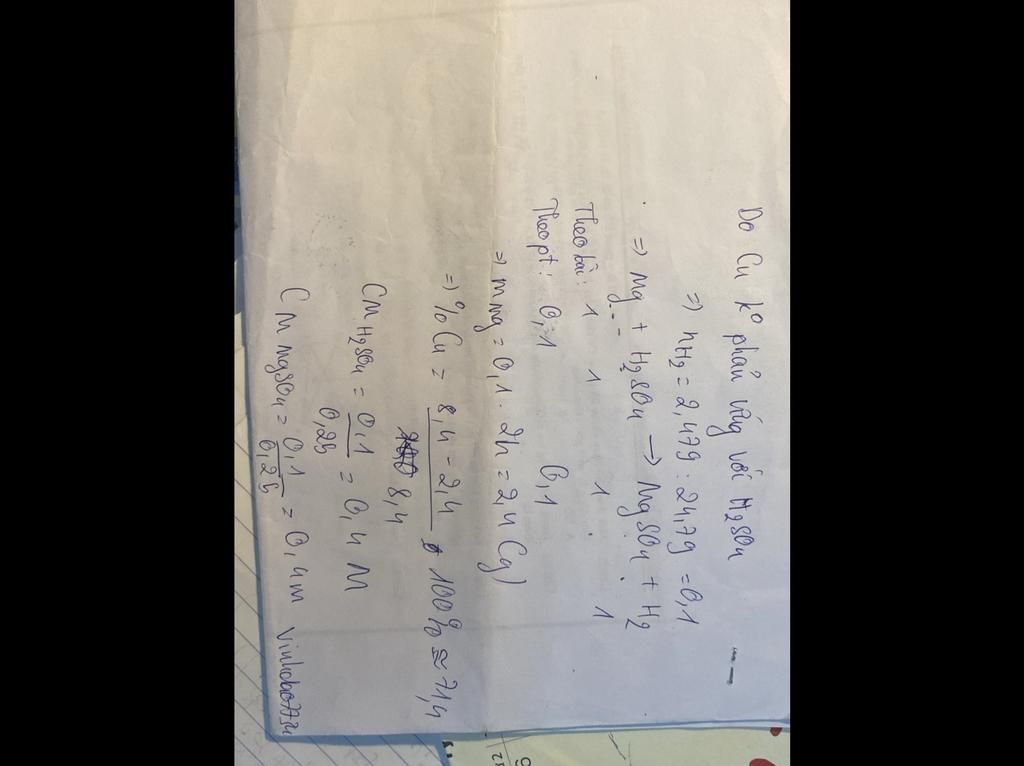 Do Cu k° phản ứng với H₂SO₄
=> nH₂ = 2,479 : 24,79 = 0,1
=> Mg + H₂SO₄ → MgSO₄ + H₂
Theo bài: 1 1 1 1
Theo pt: 0,1 0,1
=> mMg = 0,1 . 24 = 2,4 (g)
=> % Cu = 8,4 - 2,4 / 8,4 . 100% ≃ 71,4
CM H₂SO₄ = 0,1 / 0,25 = 0,4 M
CM MgSO₄ = 0,1 / 0,25 = 0,4 M